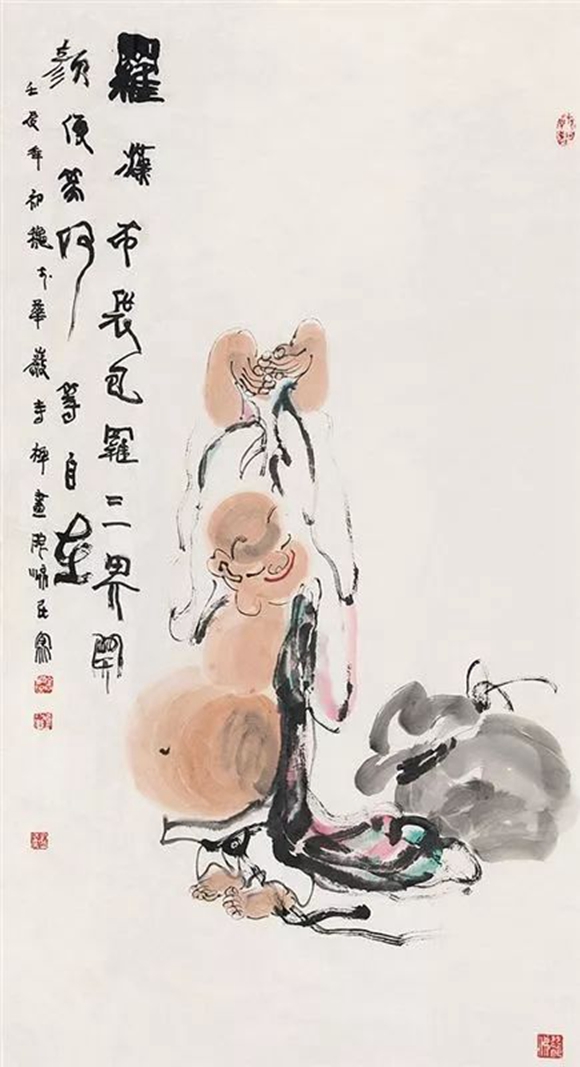 羅漢布袋包羅三界開
顏便笑何等自在
壬辰年初龝於華嚴寺禪畫院寫